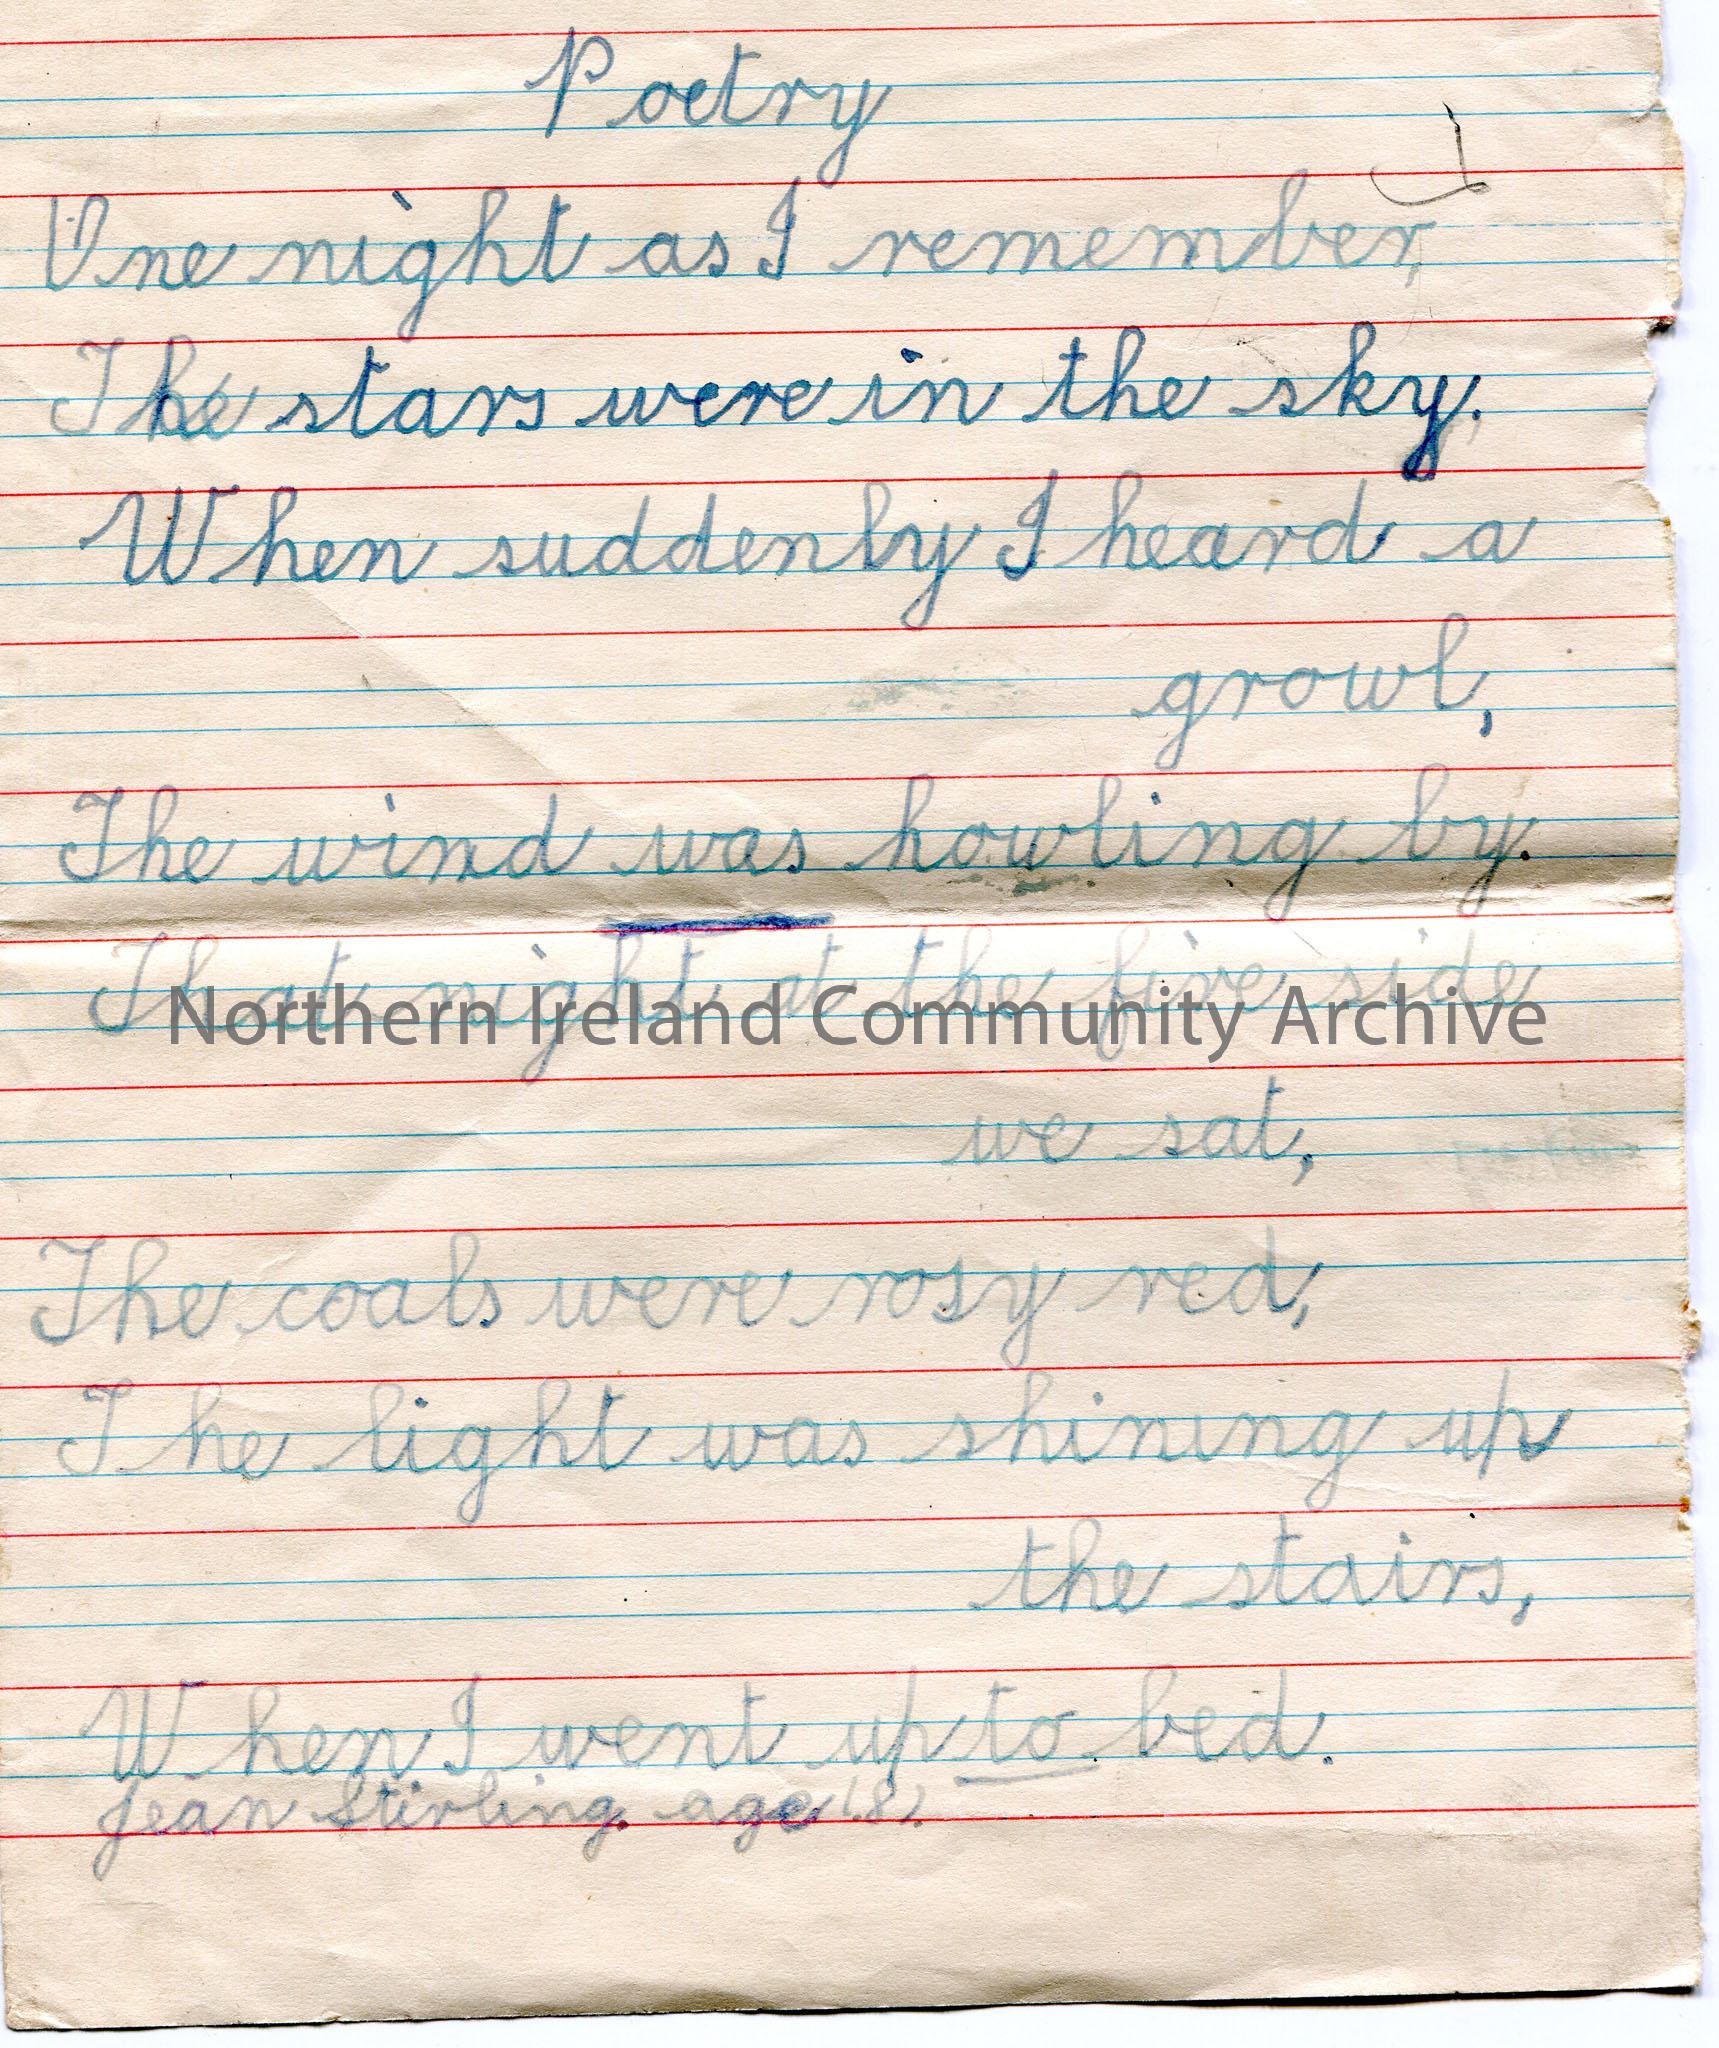 Poetry
One night as I remember,
The stars were in the sky.
When suddenly I heard a
growl,
The wind was howling by.
That night at the fire side
Northern Ireland Community Archive
we sat,
The coals were rosy red,
The light was shining up
the stairs,
When I went up to bed.
Jean Stirling. age (8).